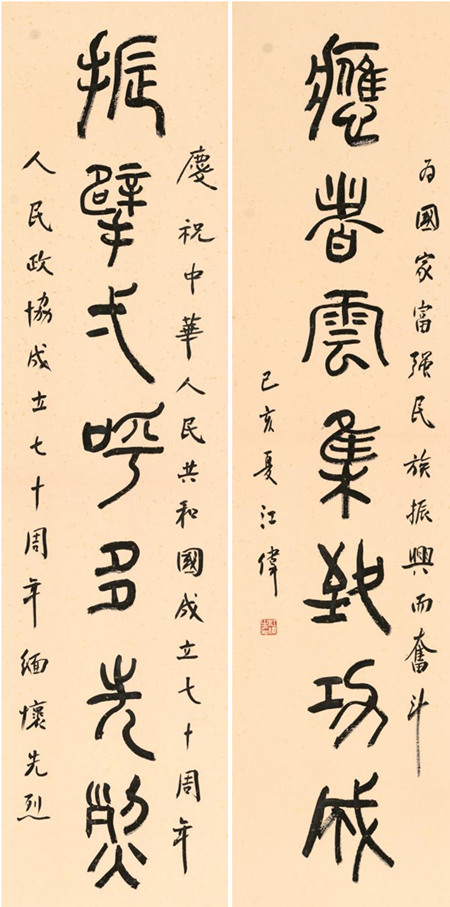 振臂弌呼多先烈
慶祝中華人民共和國成立七十周年
人民政協成立七十周年緬懷先烈
應者雲集致功成
为國家富强民族振興而奮斗
己亥夏江偉